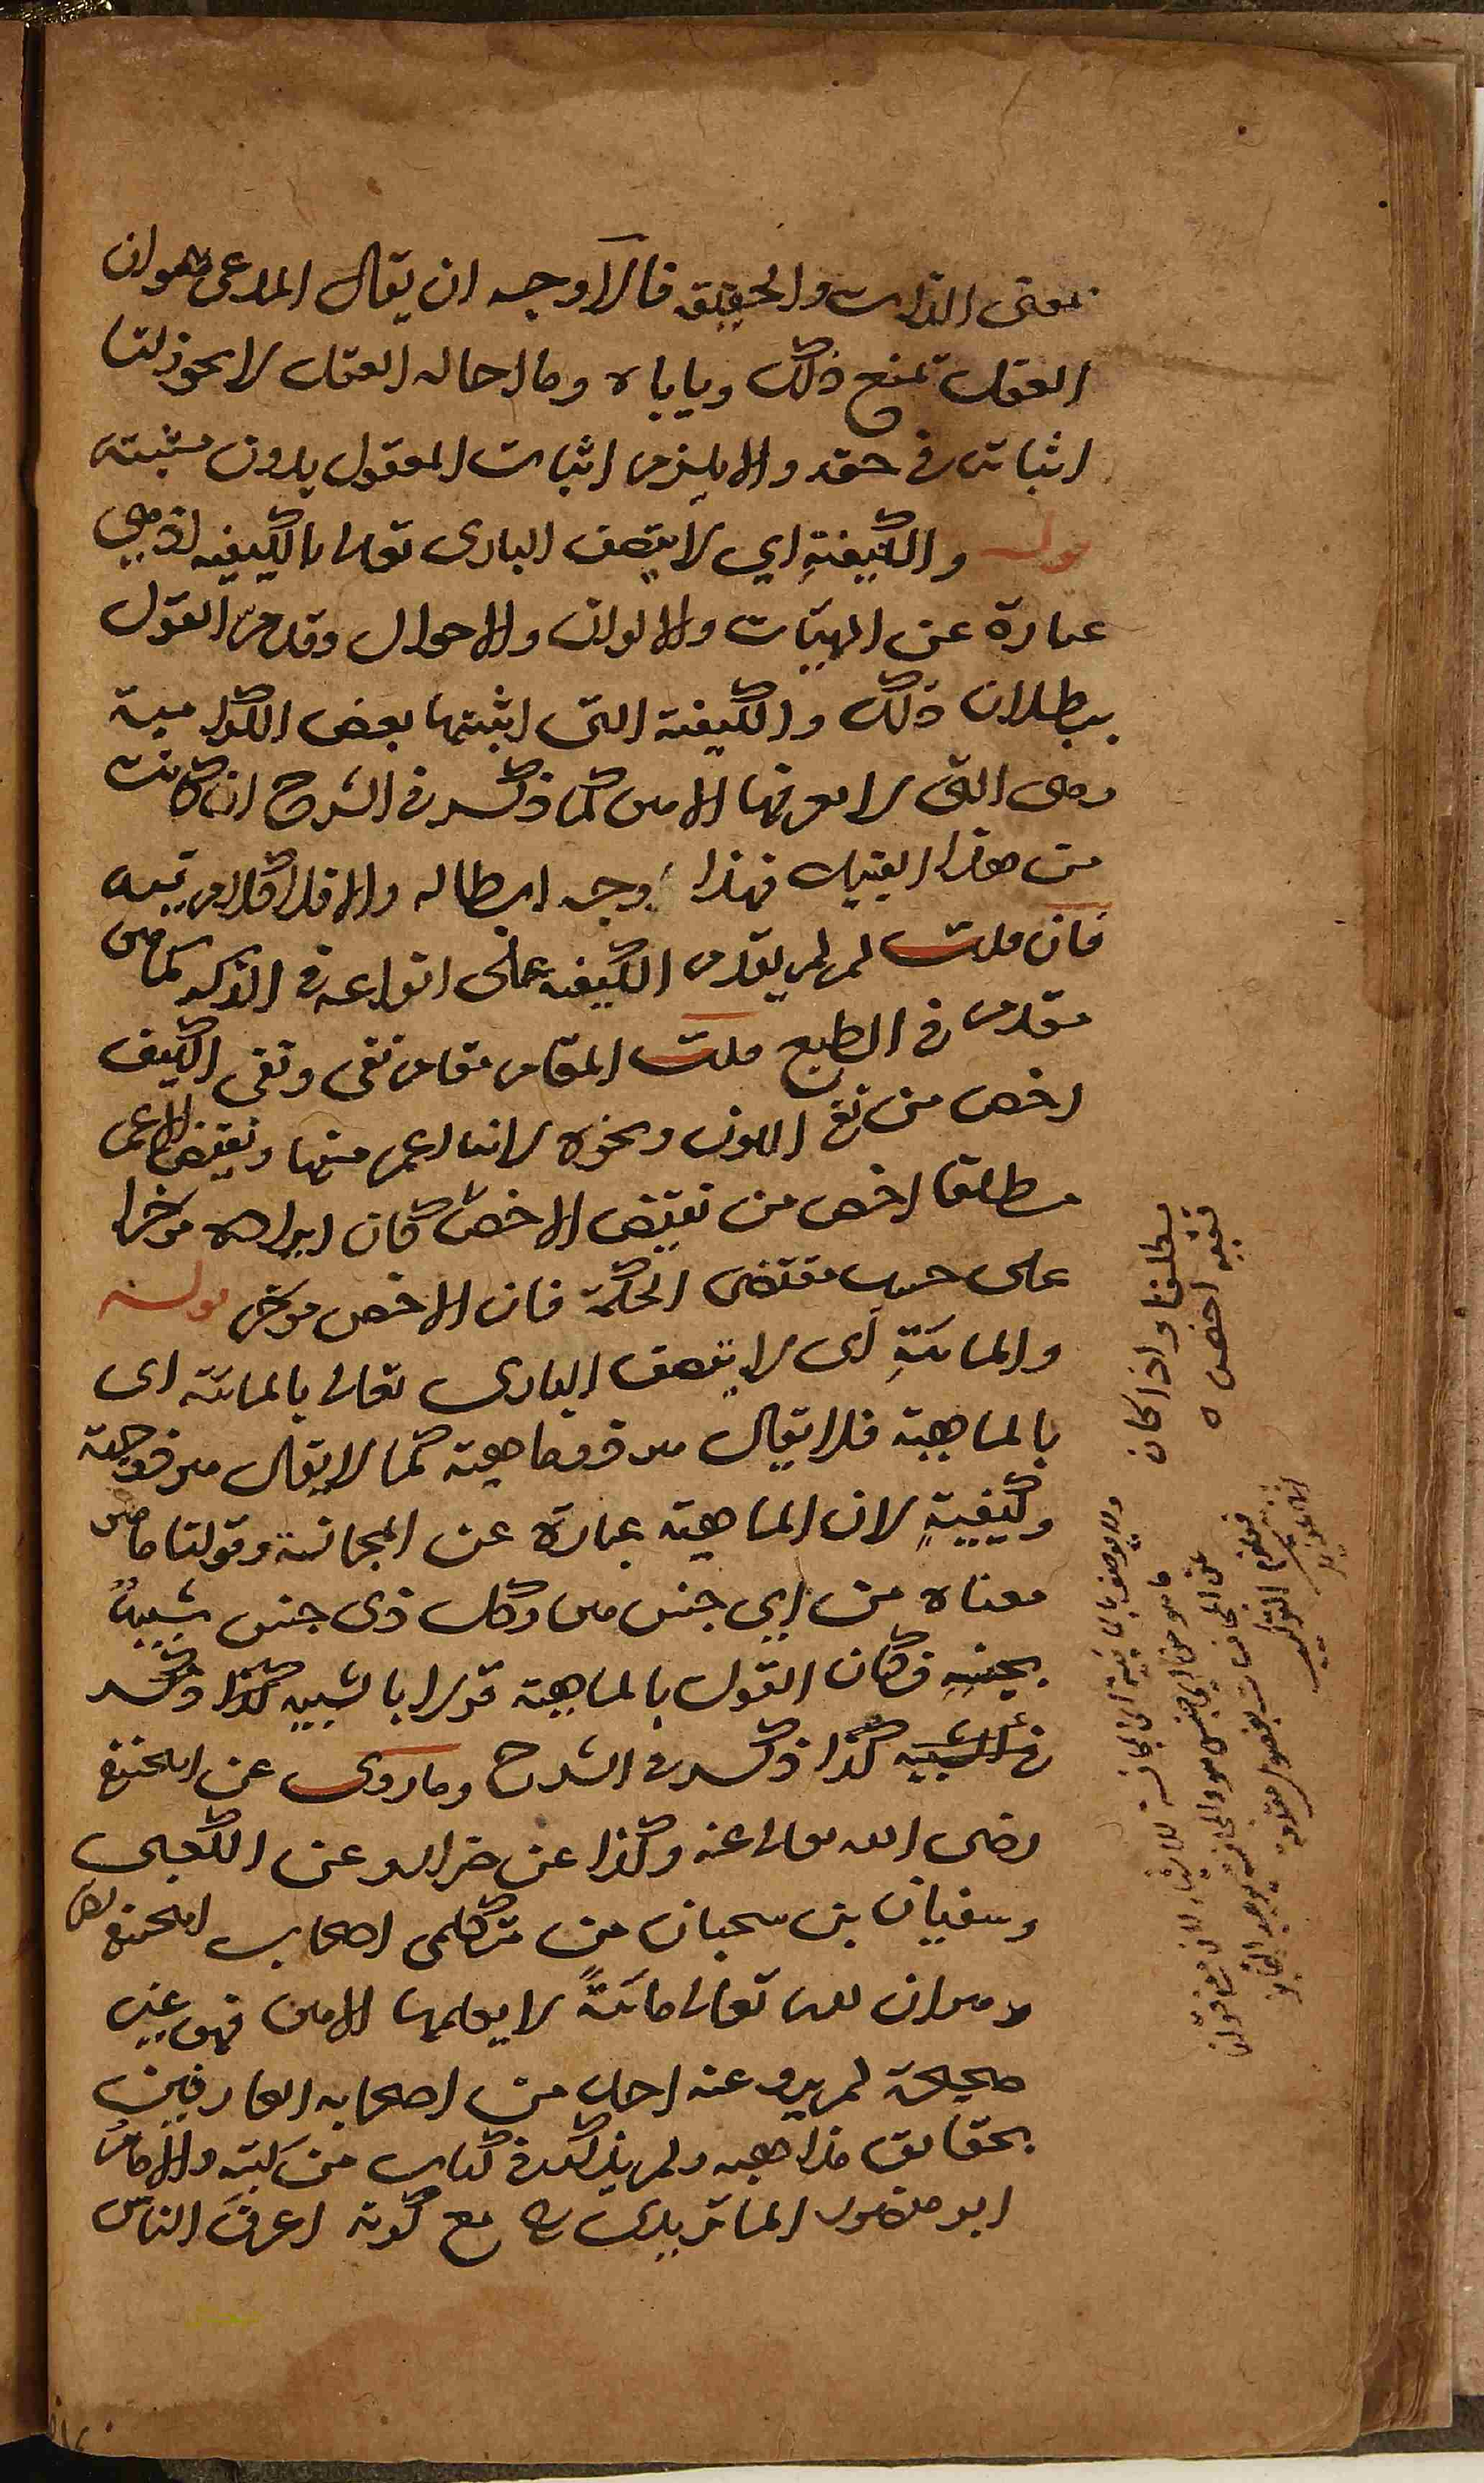 بمعنى الذات والحقيقة فالاوجه ان يقال المدعى هو ان
العقل يمنع ذلك وياباه وما احاله العقل لا يجوز لنا
اثباته في حقه والا يلزم اثبات المعقول بدون مثبته
قوله والكيفية اي لا يتصف الباري تعالى بالكيفية اذ هي
عبارة عن الهيئات والالوان والاحوال وقد مر القول
ببطلان ذلك والكيفية التي اثبتها بعض الكرامية
وهي التي لا يعرفها الا هو كما ذكره في الشرح ان كانت
من هذا القبيل فهذا وجه ابطاله والا فلا كلام فيه
فان قلت لم لم يقدم الكيفية على انواعه في الذكر كما هو
مقدم في الطبع قلت المقام مقام نفي ونفي الكيف
اخص من نفي اللون ونحوه لانه اعم منها ونقيض الاعم
مطلقا اخص من نقيض الاخص فكان ايراده مؤخرا
على حسب مقتضى الحكمة فان الاخص مؤخر قوله
والمائية اى لا يتصف البارى تعالى بالمائية اى
بالماهية فلا يقال هو ذو ماهية كما لا يقال هو ذو جهة
وكيفية لان الماهية عبارة عن المجانسة وقولنا ما هو
معناه من اي جنس هو وكل ذى جنس شبيه
بجنسه فكان القول بالماهية قولا بالتشبيه كذا ذكره
في الشبيه كذا ذكره في الشرح وما روى عن ابي حنيفة
رضى الله تعالى عنه وكذا عن ضرار وعن الكعبي
وسفيان بن سحبان من متكلمى اصحاب ابي حنيفة
وهو ان لله تعالى مائيةً لا يعلمها الا هو فهو غير
صحيحة لم يرو عنه احد من اصحابه العارفين
بحقايق مذاهبه ولم يذكره في كتاب من كتبه والامام
ابو منصور الماتريدى رح مع كونه اعرف الناس
مطلقا واذا كان
نفيه اخص ه